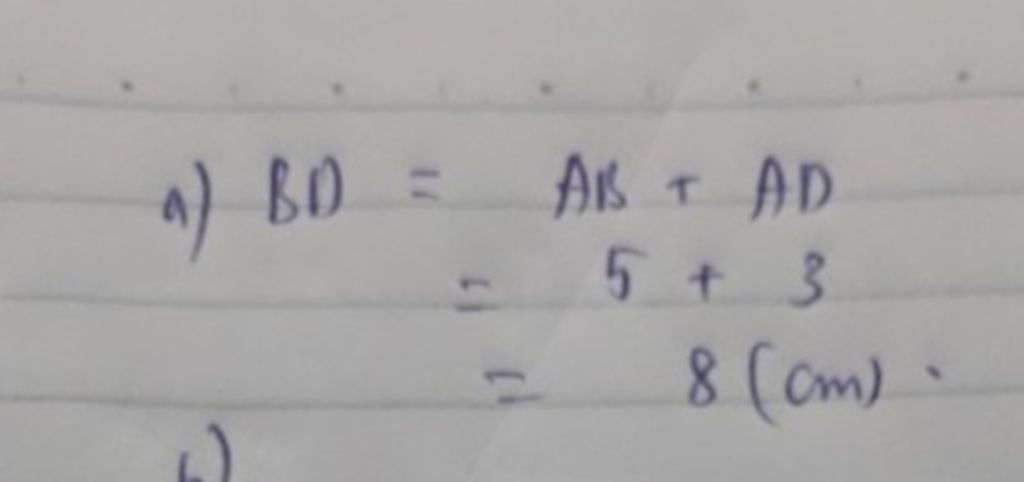 a) BD = AB + AD
= 5 + 3
= 8 (cm).
b)